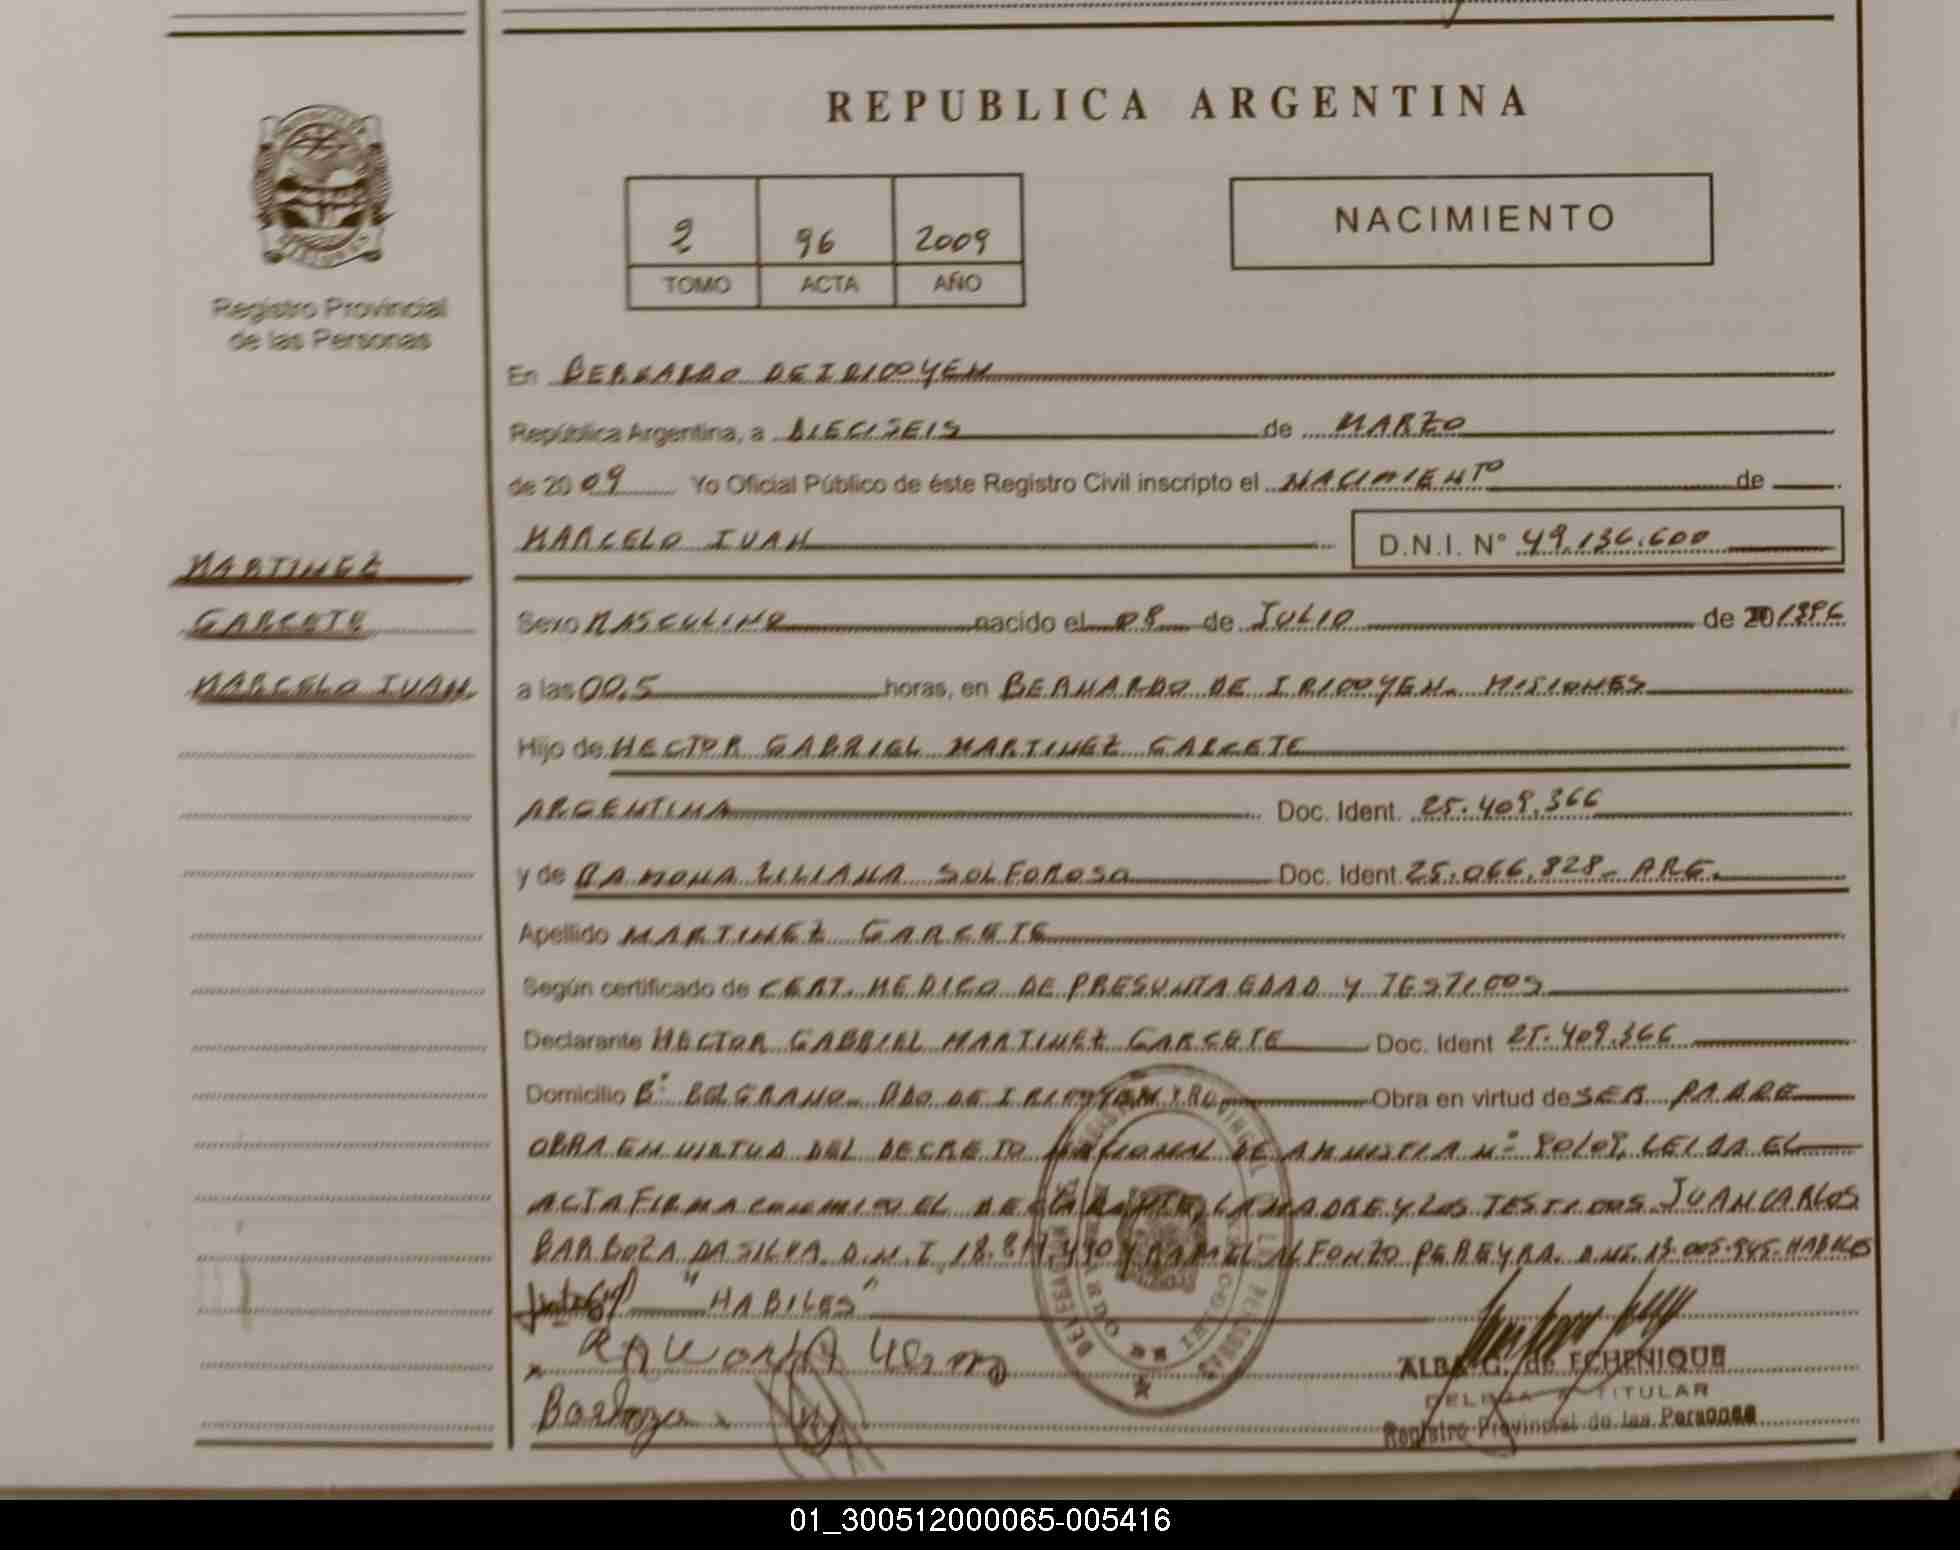 REPUBLICA ARGENTINA
2 96 2009
TOMO ACTA AÑO
NACIMIENTO
Registro Provincial
de las Personas
En BERNARDO DE IRIGOYEN
República Argentina, a DIECISEIS de MARZO
de 2009 Yo Oficial Público de éste Registro Civil inscripto el NACIMIENTO de
MARCELO IVAN D.N.I. N° 49.136.600
MARTINEZ
GARCETE
MARCELO IVAN
Sexo MASCULINO nacido el 08 de JULIO de 1996
a las 00.5 horas, en BERNARDO DE IRIGOYEN. MISIONES
Hijo de HECTOR GABRIEL MARTINEZ GARCETE
ARGENTINA Doc. Ident. 25.409.366
y de RAMONA LILIANA SOLFOROSO Doc. Ident 25.066.828- ARG.
Apellido MARTINEZ GARCETE
Según certificado de CERT. MEDICO DE PRESUNTA EDAD Y TESTIGOS
Declarante HECTOR GABRIEL MARTINEZ GARCETE Doc. Ident 25.409.366
Domicilio B° BELGRANO. BDO DE IRIGOYEN Obra en virtud de SER PADRE
OBRA EN VIRTUD DEL DECRETO NACIONAL DE AMNISTIA N° 90/09, LEIDA EL
ACTA FIRMA CONMIGO EL DECLARANTE, LA MADRE Y LOS TESTIGOS JUAN CARLOS
BARBOZA DA SILVA D.N.I. Y ALFONZO PEREYRA. D.N.I. 13.005.945. HABILES
"HABILES"
RAMONA
Barboza
ALBA G. de ECHENIQUE
DELEGADA TITULAR
Registro Provincial de las Personas
01_300512000065-005416